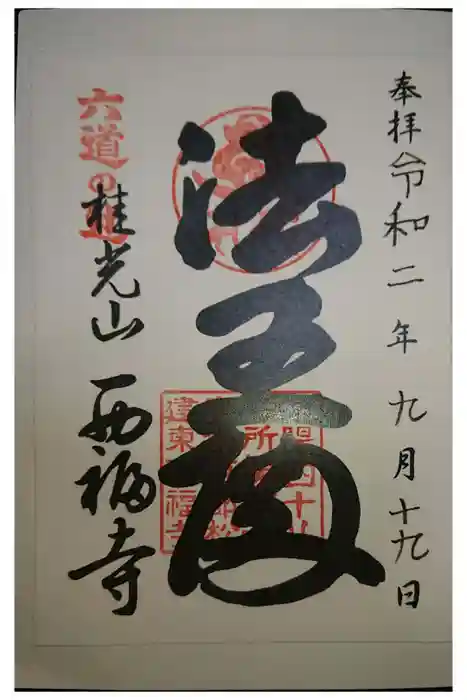 奉拝 令和二年 九月十九日
法王殿
桂光山 西福寺
六道の辻